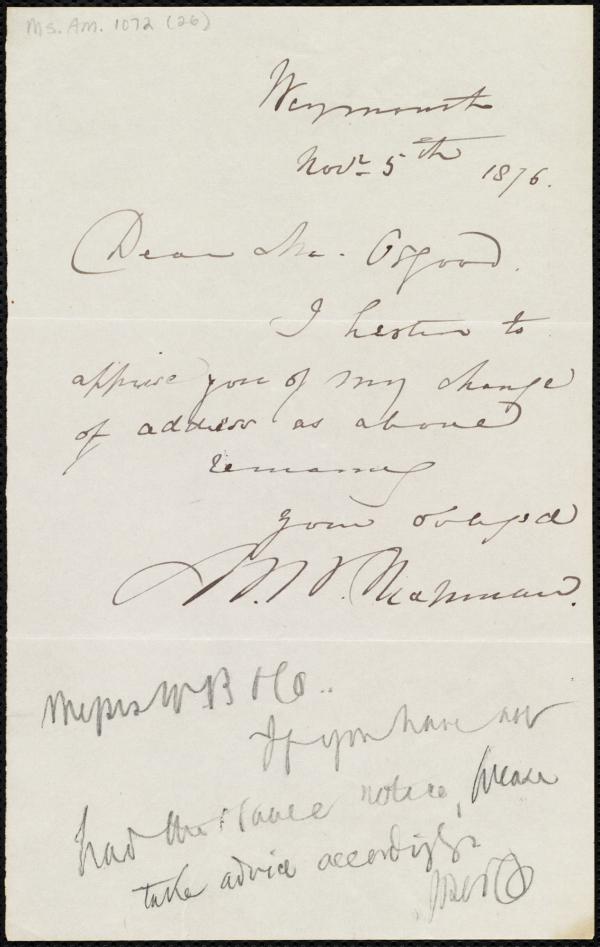 Ms. Am. 1072 (26)
Weymouth
Novr. 5th 1876.
Dear Mr. Osgood.
I hasten to
apprise you of my change
of address as above
remaining
your obliged
M. W. Chapman.
Messrs W. B & Co..
If you have not
had the same notice, please
take advice accordingly